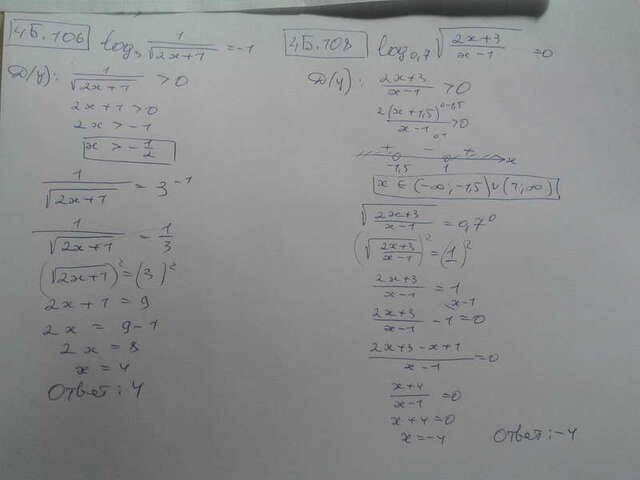 4Б.106 log₃ 1/√(2x+1) = -1
Д(y): 1/√(2x+1) > 0
2x+1>0
2x > -1
x > -1/2
1/√(2x+1) = 3⁻¹
1/√(2x+1) = 1/3
(√(2x+1))² = (3)²
2x+1 = 9
2x = 9-1
2x = 8
x = 4
Ответ: 4
4Б.108 log₀,₇ √((2x+3)/(x-1)) = 0
Д(y): (2x+3)/(x-1) > 0
2(x+1,5)/(x-1) > 0
+ - +
-1,5 1 x
x ∈ (-∞; -1,5) ∪ (1; ∞)
√((2x+3)/(x-1)) = 0,7⁰
(√((2x+3)/(x-1)))² = (1)²
(2x+3)/(x-1) = 1
(2x+3)/(x-1) - 1 = 0
(2x+3-x+1)/(x-1) = 0
(x+4)/(x-1) = 0
x+4=0
x=-4 Ответ: -4